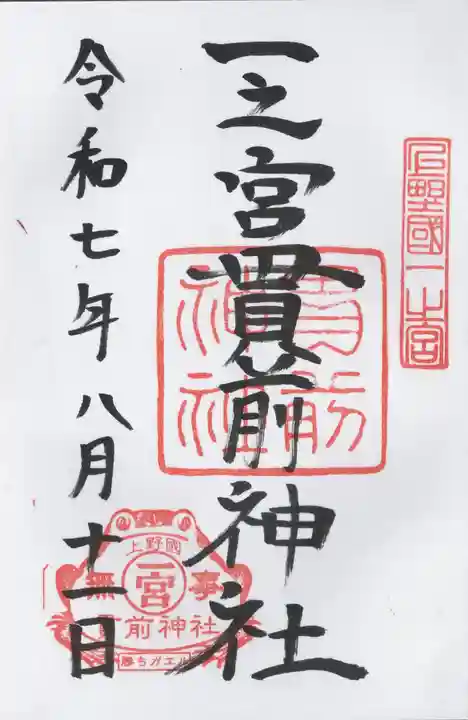 上野國一之宮
一之宮貫前神社
貫前神社
令和七年八月十一日
上野國
無事
一宮
貫前神社
勝ちガエル